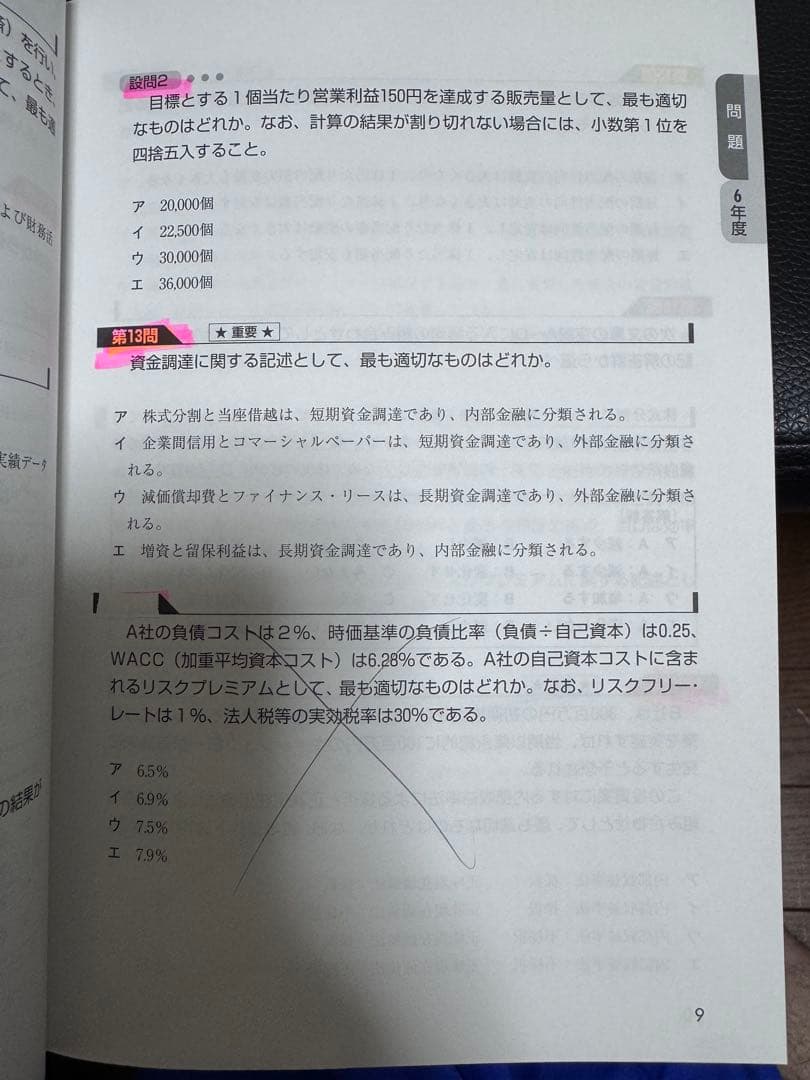 済）を行い、
するとき、
て、最も適
設問2
目標とする1個当たり営業利益150円を達成する販売量として、最も適切
なものはどれか。なお、計算の結果が割り切れない場合には、小数第1位を
四捨五入すること。
ア 20,000個
イ 22,500個
ウ 30,000個
エ 36,000個
問題
6年度
よび財務活
第13問
★重要★
資金調達に関する記述として、最も適切なものはどれか。
ア 株式分割と当座借越は、短期資金調達であり、内部金融に分類される。
イ 企業間信用とコマーシャルペーパーは、短期資金調達であり、外部金融に分類さ
れる。
ウ 減価償却費とファイナンス・リースは、長期資金調達であり、外部金融に分類さ
れる。
エ 増資と留保利益は、長期資金調達であり、内部金融に分類される。
実績データ
A社の負債コストは2％、時価基準の負債比率（負債÷自己資本）は0.25、
WACC（加重平均資本コスト）は6.28％である。A社の自己資本コストに含ま
れるリスクプレミアムとして、最も適切なものはどれか。なお、リスクフリー・
レートは1％、法人税等の実効税率は30％である。
ア 6.5%
イ 6.9%
ウ 7.5%
エ 7.9%
の結果が
9